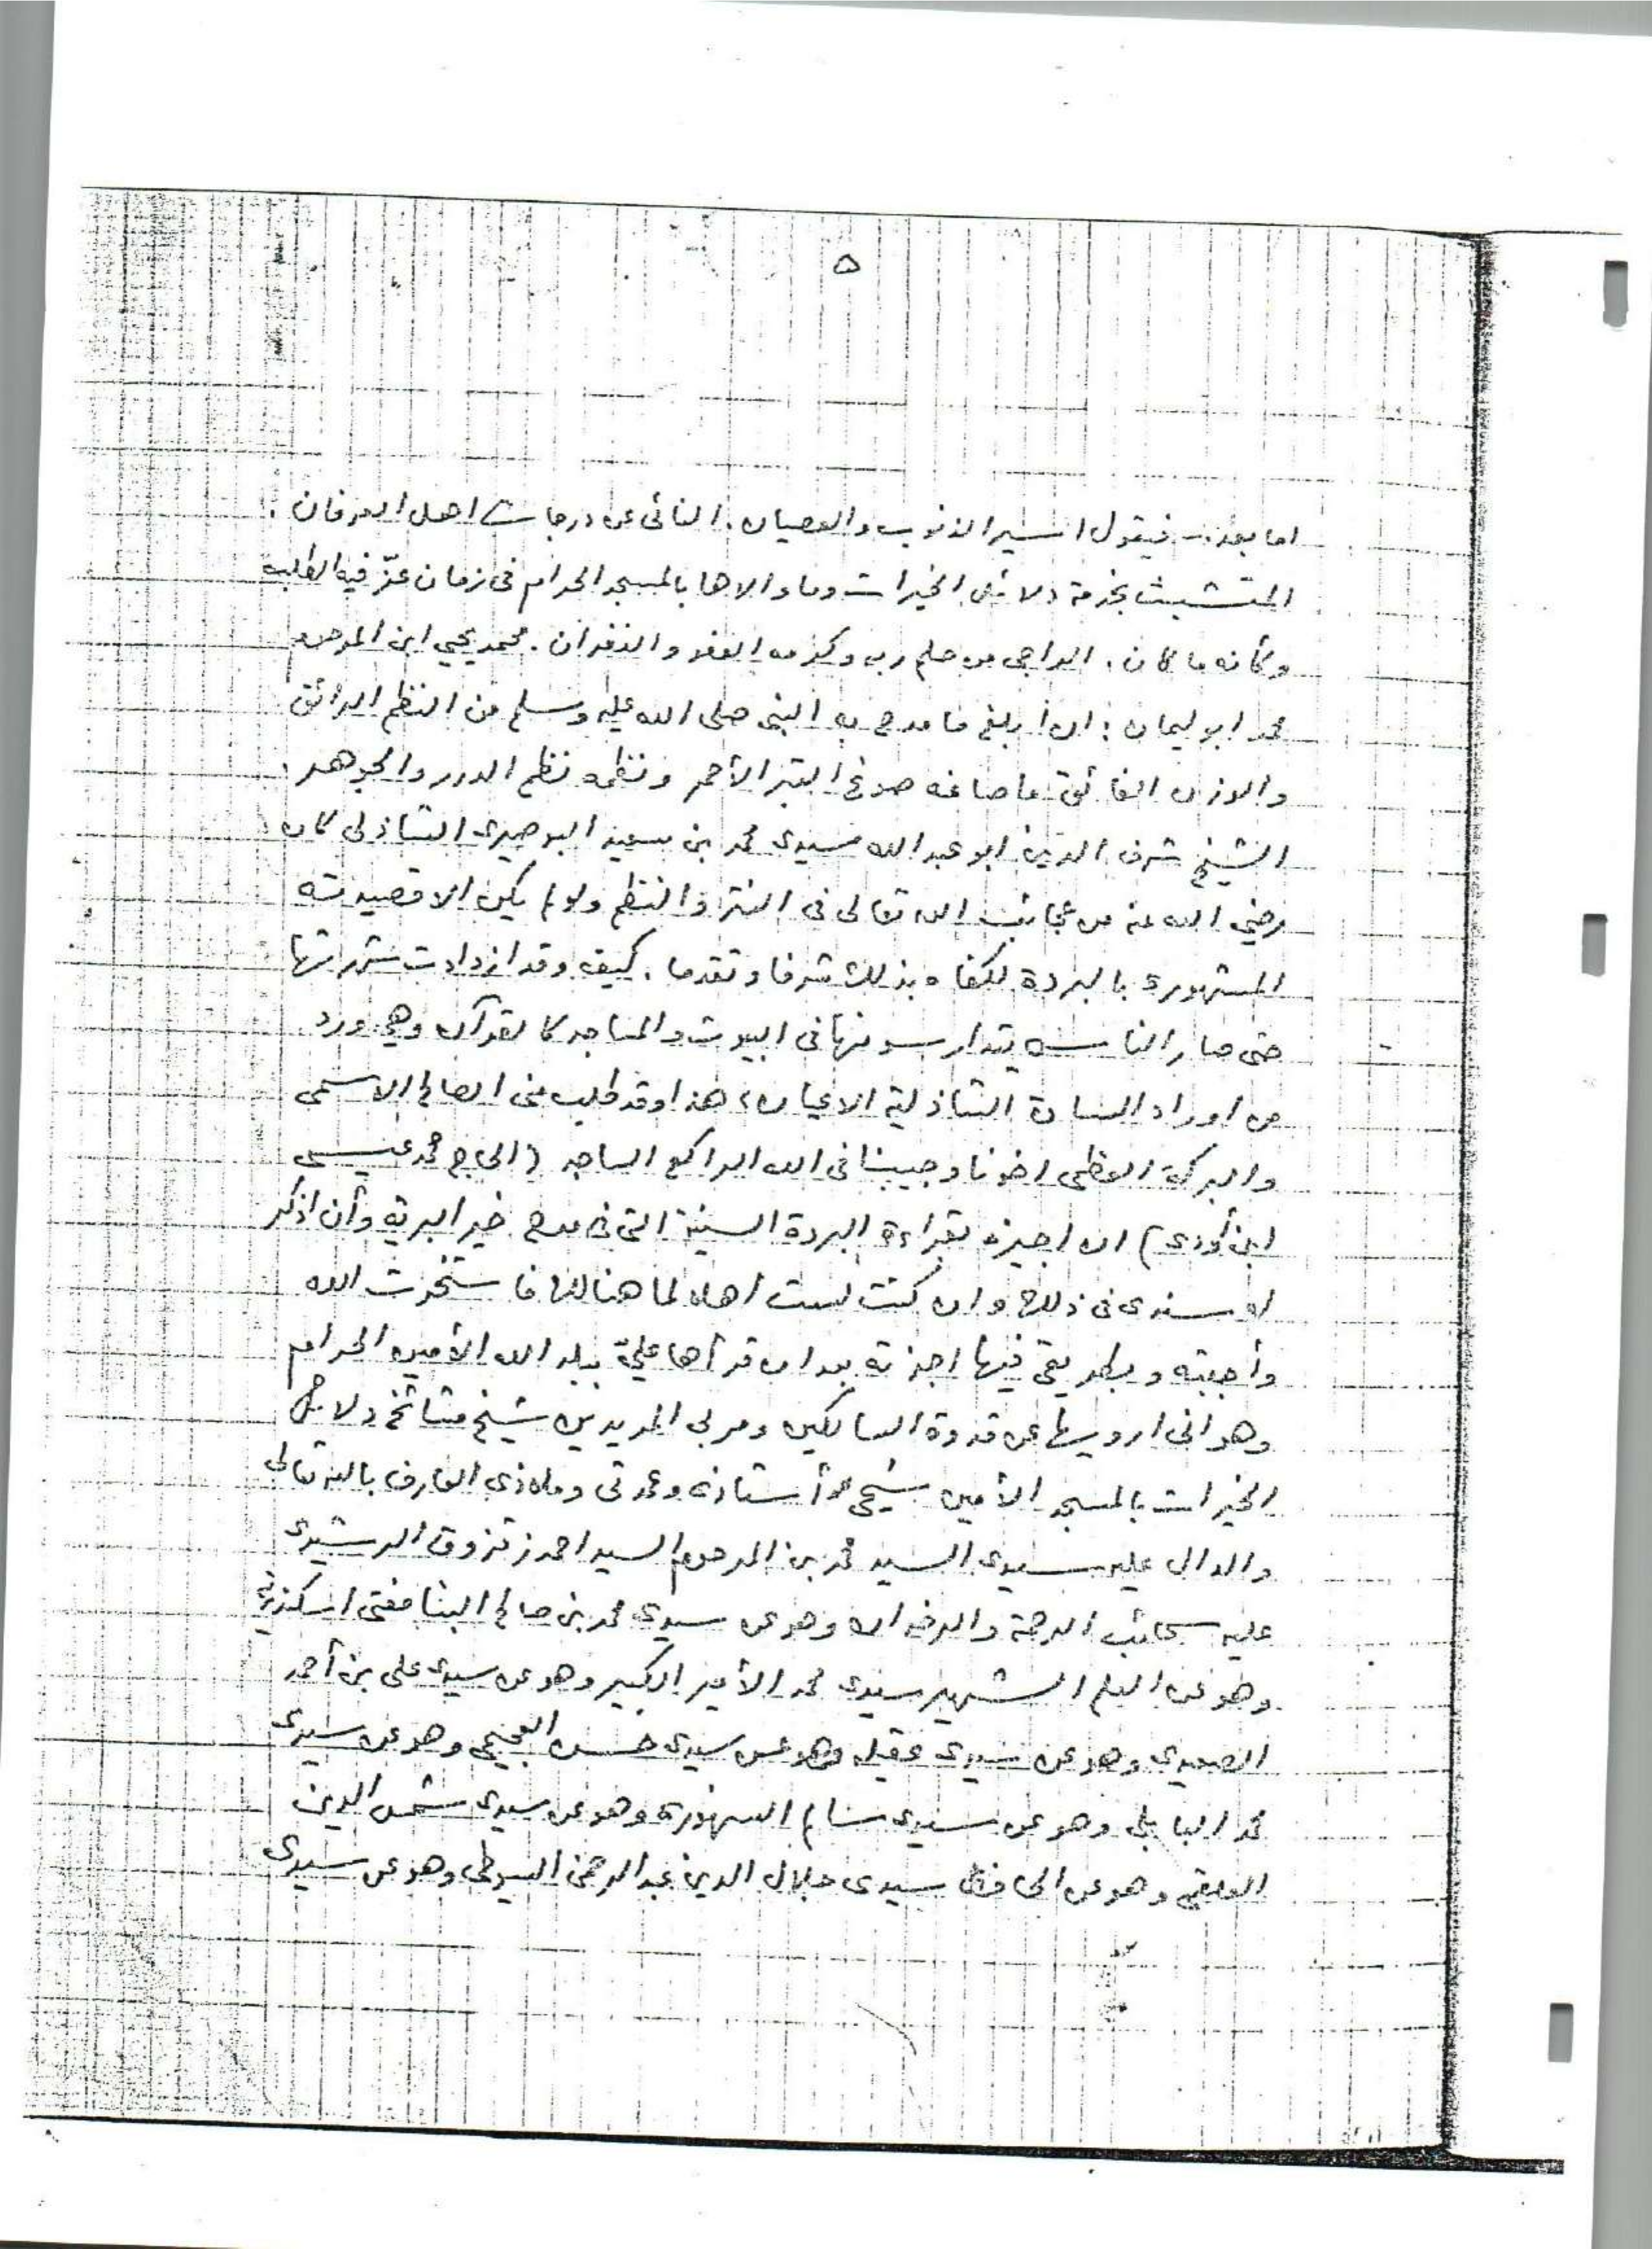 ٥
اما بعد :- فيقول اسير الذنوب والعصيان . النائى عن درجات اهل العرفان .
المتشبث بخدمة دلائل الخيرات وما والاها بالمسجد الحرام فى زمان عزّ فيه الطلبه
وكأنه ما كان . الراجى من حلم ربه وكرمه العفو والغفران . محمد يحيى ابن المرحوم
محمد ابو ليمان : ان أبلغ ما مدح به النبى صلى الله عليه وسلم من النظم الرائق
والوزن الفائق ما صاغه صوغ التبر الأحمر ونظمه نظم الدرر والجوهر .
الشيخ شرف الدين ابو عبد الله سيدى محمد بن سعيد البوصيرى الشاذلى كان
رضي الله عنه من عجائب الله تعالى فى النثر والنظم ولو لم يكن الا قصيدته
المشهورة بالبردة لكفاه بذلك شرفا وتقدما . كيف وقد ازدادت شهرتها
حتى صار الناس يتدارسونها فى البيوت والمساجد كالقرآن وهي ورد
من اوراد السادة الشاذلية الاعيان ، هذا وقد طلب منى الصالح الاسمى
والبركة العظمى اخونا وحبيبنا فى الله الراكع الساجد ( الحاج محمد عيسى
ابن أودى ) ان اجيزه بقراءة البردة السنية التى فى مدح خير البرية وأن اذكر
له سندى فى ذلك وان كنت لست أهلا لما هنالك فاستخرت الله
وأجبته وبطريقى فيها اجزته بعد ان قرأها عليّ ببلد الله الأمين الحرام
وهو انى ارويها عن قدوة السالكين ومربى المريدين شيخ مشائخ دلائل
الخيرات بالمسجد الأمين شيخى وأستاذى وعمدتى وملاذى العارف بالله تعالى
والدال عليه سيدى السيد محمد بن المرحوم السيد احمد زقزوق الرشيدى
عليه سحائب الرحمة والرضوان وهو عن سيدى محمد بن صالح البنا مفتى اسكندرية
وهو عن العلم الشهير سيدى محمد الأمير الكبير وهو عن سيدى على بن أحمد
الصعيدى وهو عن سيدى عقيلة وهو عن سيدى حسن العجيمى وهو عن سيدى
محمد البابلى وهو عن سيدى سالم السنهورى وهو عن سيدى شمس الدين
العلقمى وهو عن الحافظ سيدى جلال الدين عبد الرحمن السيوطى وهو عن سيدى